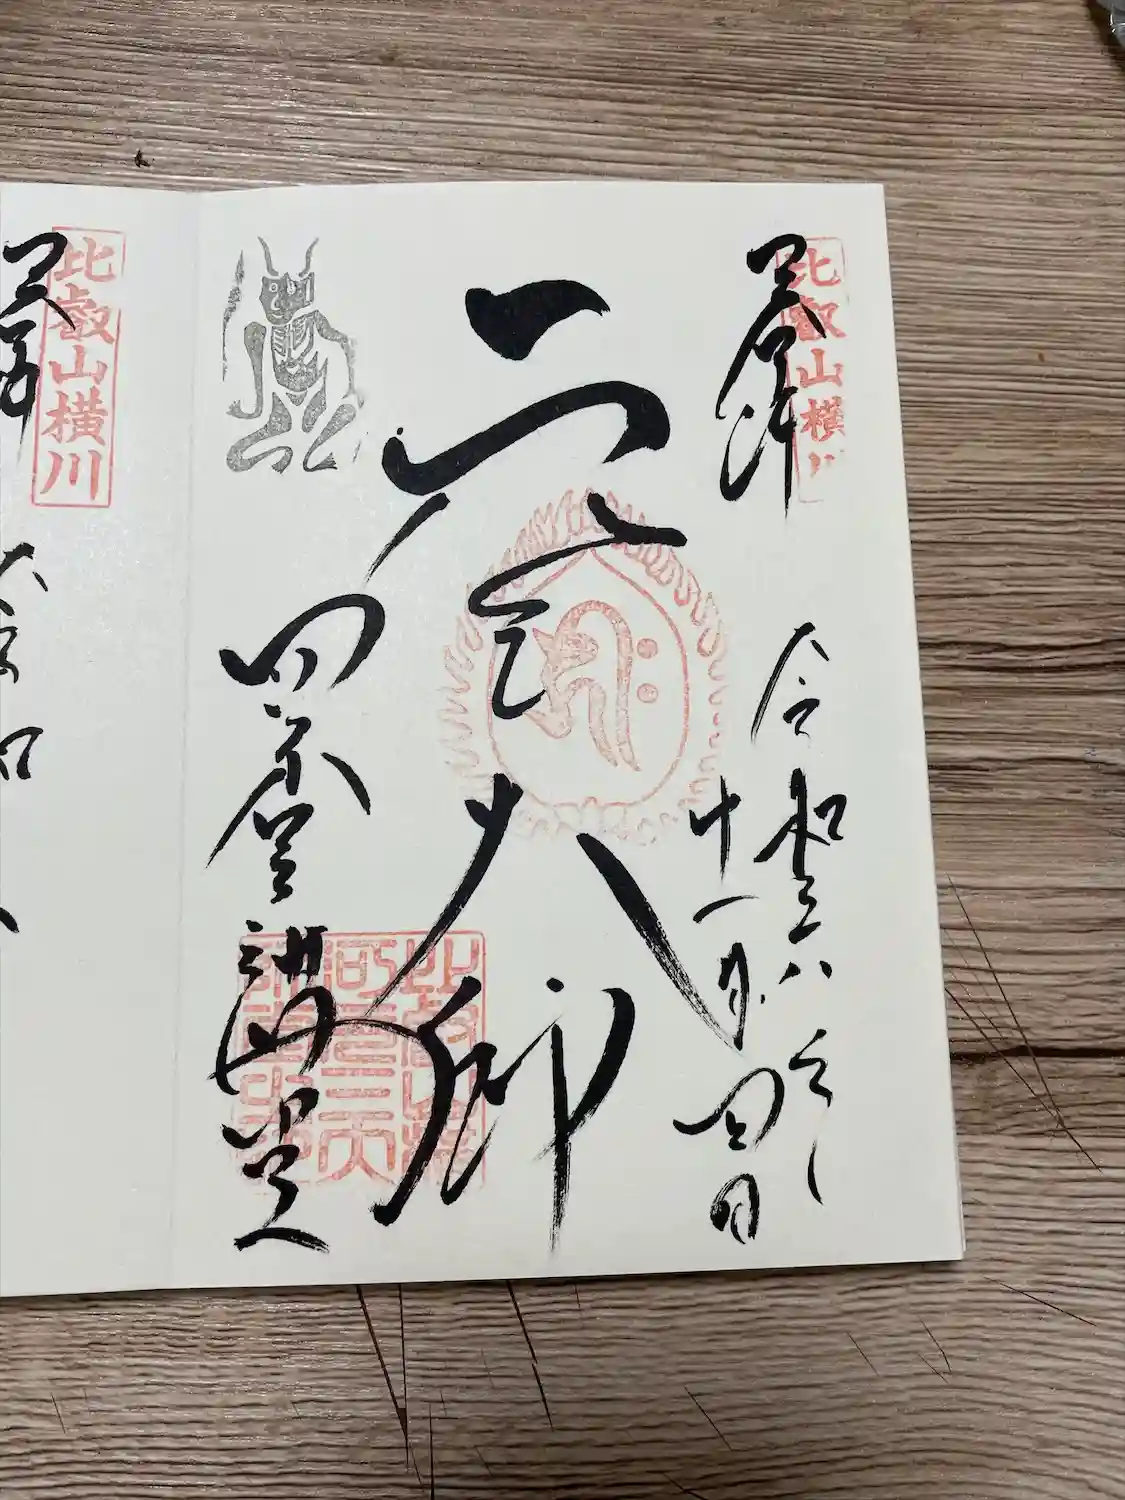 比叡山横川
奉拝
令和六年
十一月
元三大師
四季講堂
比叡山横川
奉拝
令和